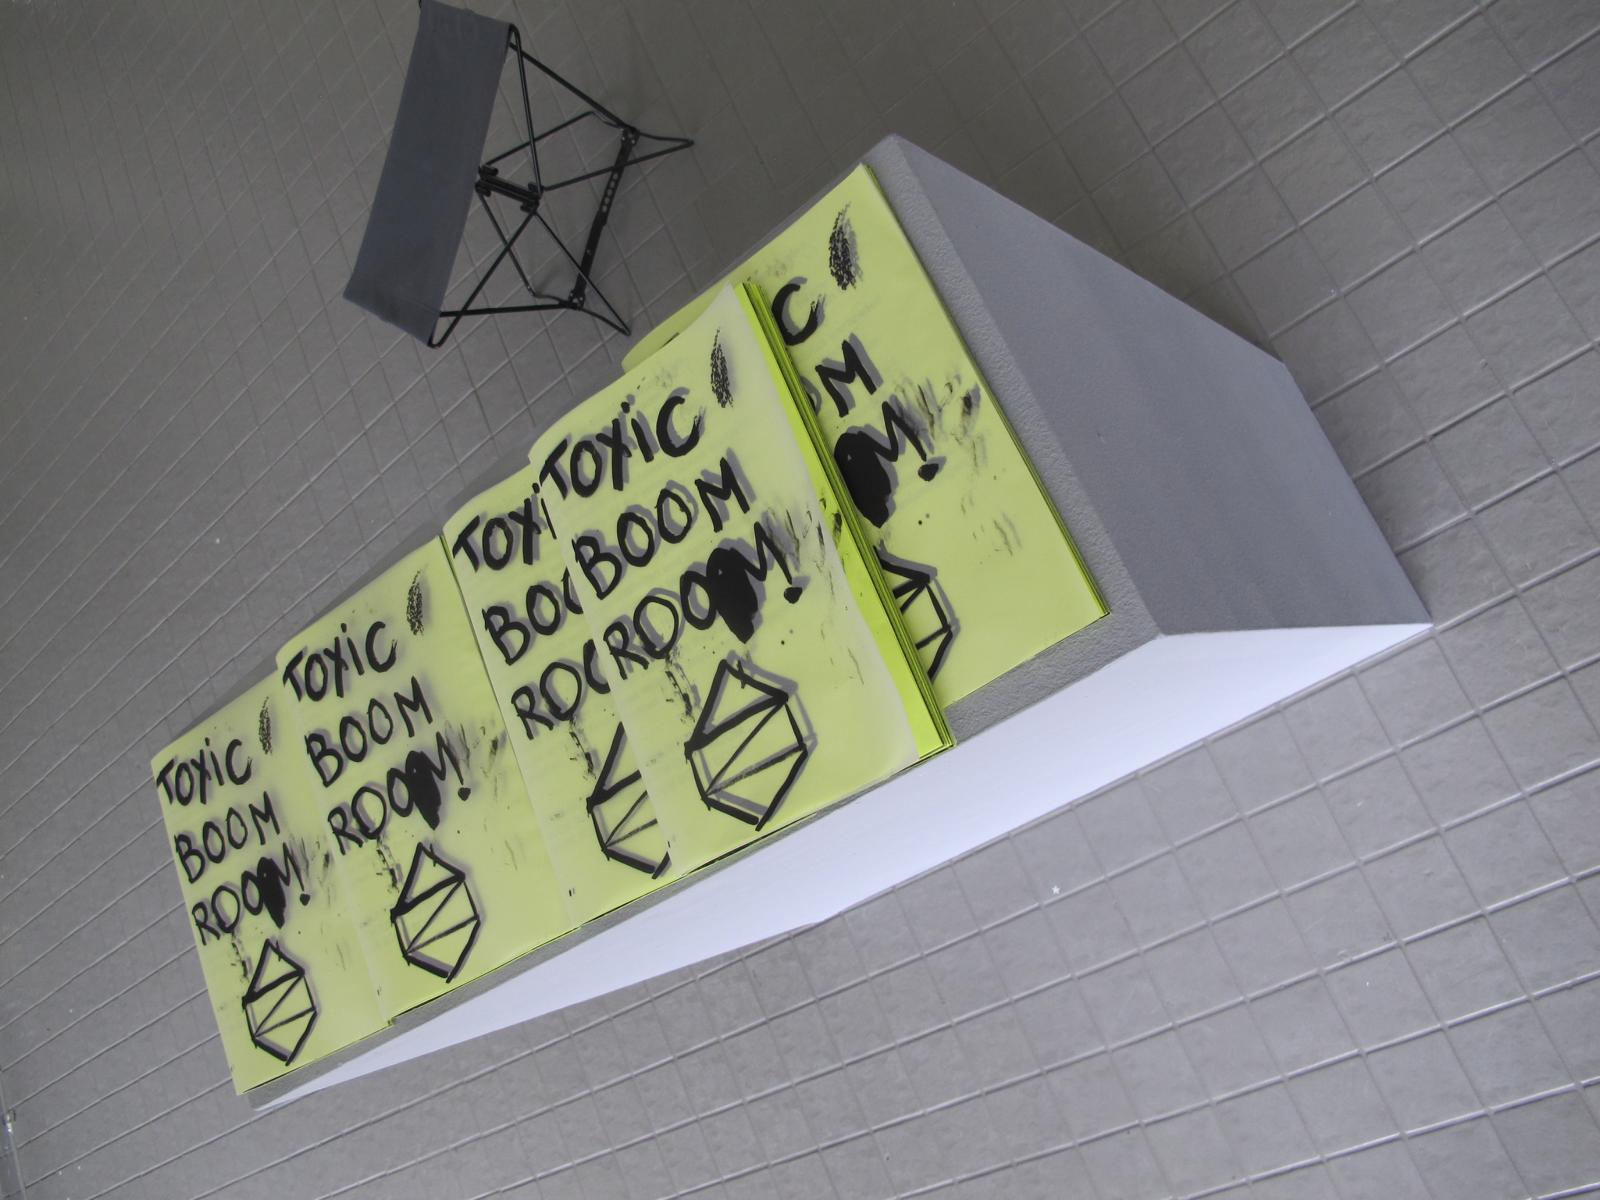 TOXiC
BOOM
ROOM!
TOXiC
BOOM
ROOM!
TOXi
BOO
ROO
TOXiC
BOOM
ROOM!
C
OM
OM!